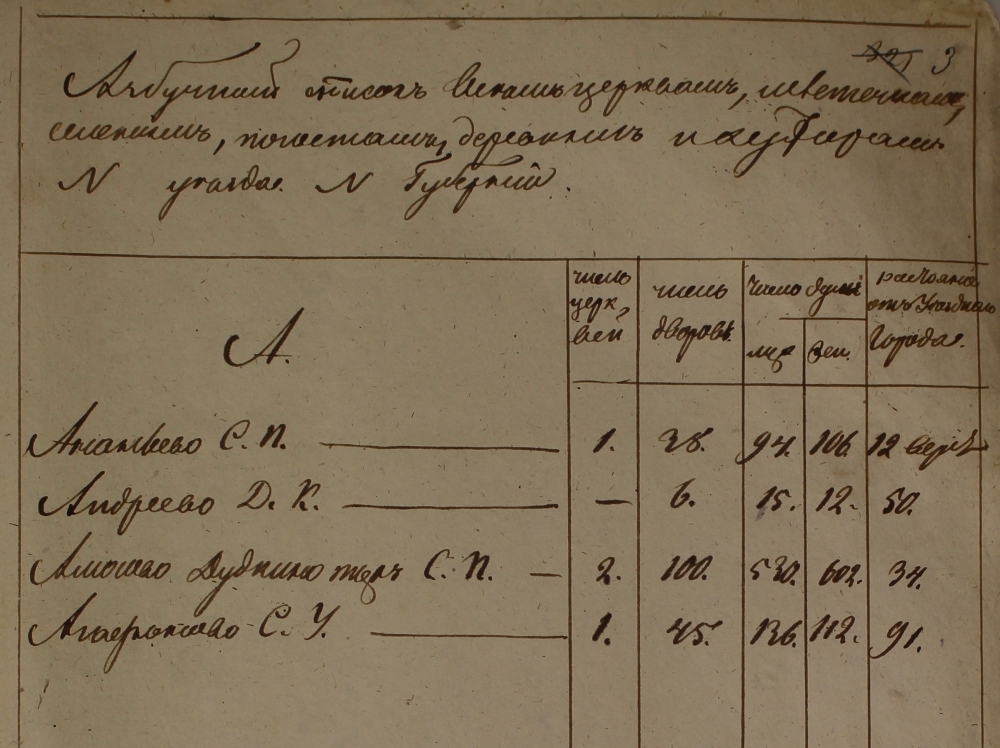 3
Азбучный список всемъ церквамъ, местечкам,
селениямъ, погостамъ, деревнямъ и хуторамъ
N уезда. N Губернии.
А.
число церк,вей
число дворовъ.
Число душъ
муж
жен.
расстояние отъ Уездного Города.
Ананьево С. П. 1. 38. 94. 106. 12 верст
Андреево Д. К. — 6. 15. 12. 50.
Амосово Дудкино тожъ С. П. 2. 100. 530. 602. 34.
С. У. 1. 45. 136. 112. 91.